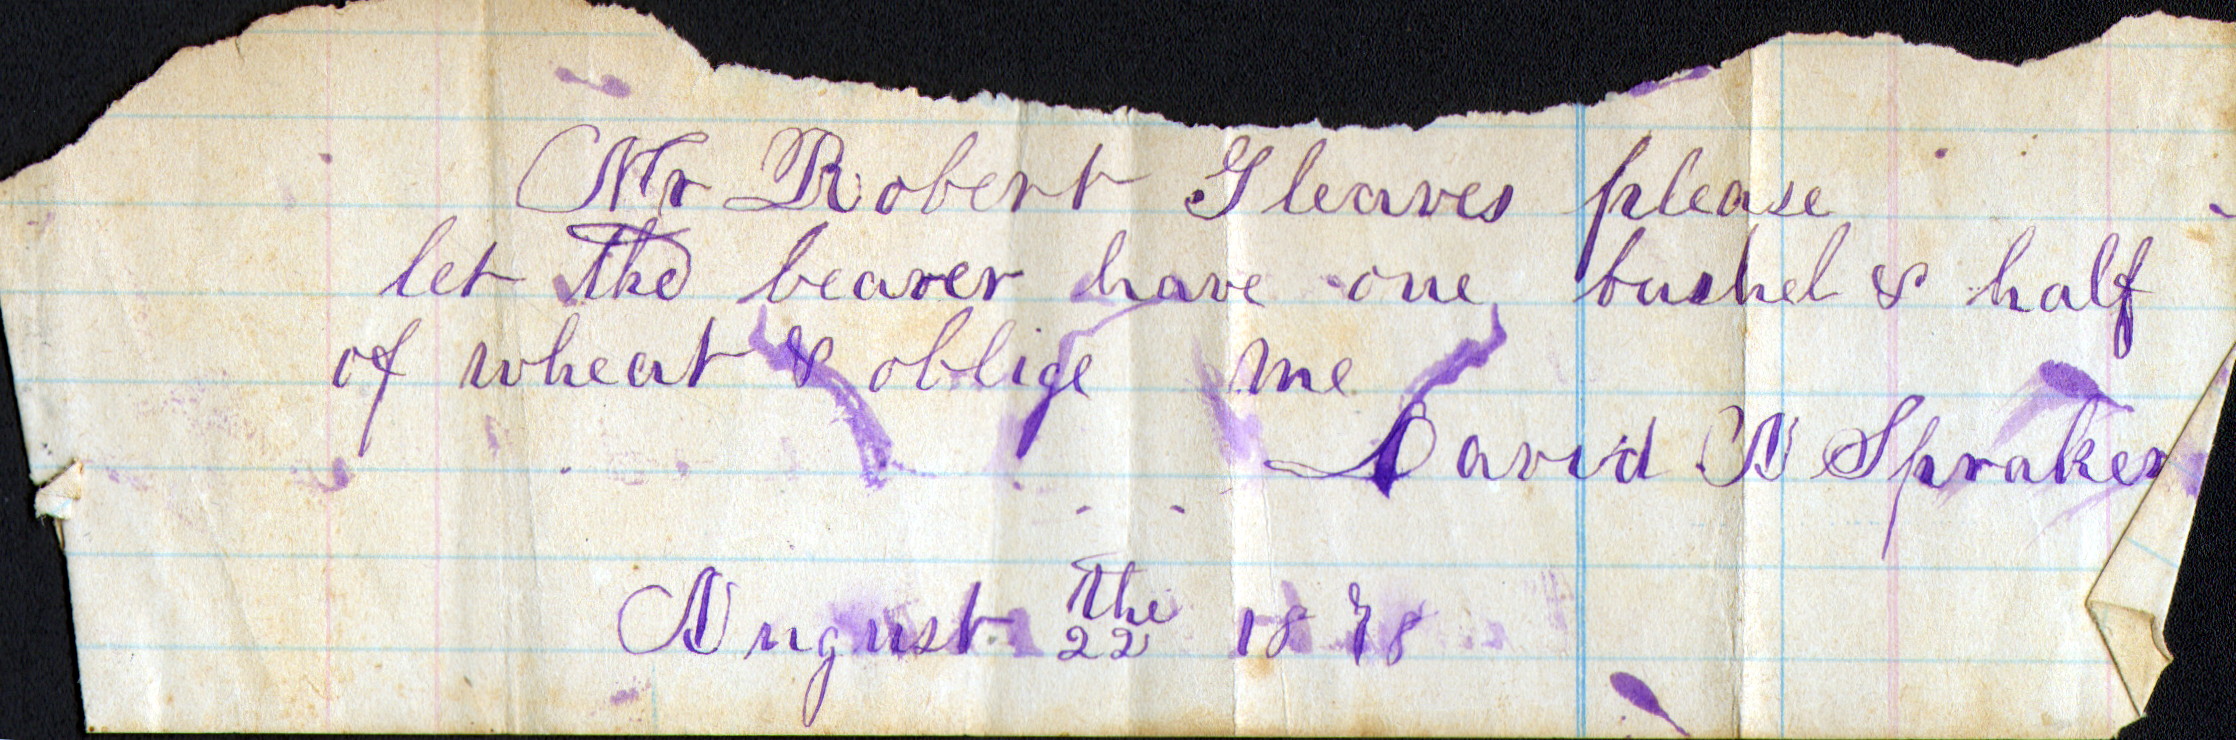 Mr Robert Gleaves please
let the bearer have one bushel & half
of wheat & oblige me
David N Spraker
August the
22 1878